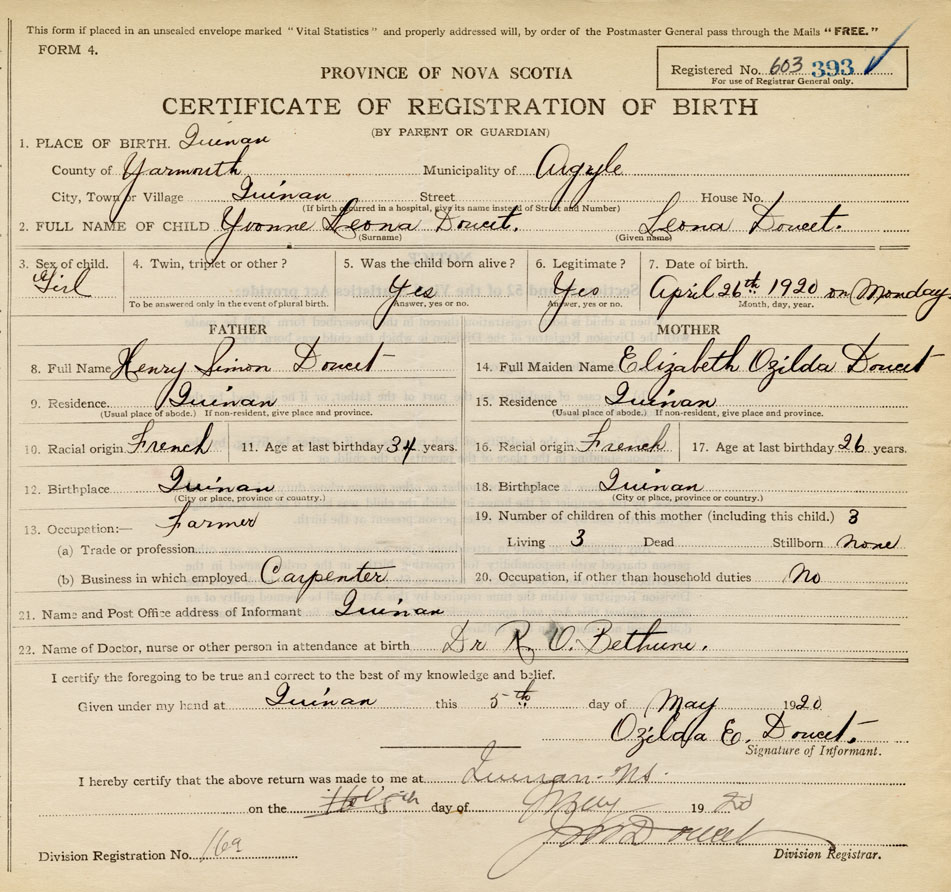 This form if placed in an unsealed envelope marked "Vital Statistics" and properly addressed will, by order of the Postmaster General pass through the Mails "FREE."
FORM 4.
Registered No. 603 393
For use of Registrar General only.
PROVINCE OF NOVA SCOTIA
CERTIFICATE OF REGISTRATION OF BIRTH
(BY PARENT OR GUARDIAN)
1. PLACE OF BIRTH. Quinan
County of Yarmouth Municipality of Argyle
City, Town or Village Quinan Street House No.
(If birth occurred in a hospital, give its name instead of Street and Number)
2. FULL NAME OF CHILD Yvonne Leona Doucet. Leona Doucet.
(Surname) (Given name)
3. Sex of child. 4. Twin, triplet or other? 5. Was the child born alive? 6. Legitimate? 7. Date of birth.
Girl Yes Yes April 26th 1920 on Monday
To be answered only in the event of plural birth. Answer, yes or no. Answer, yes or no. Month, day, year.
FATHER MOTHER
8. Full Name Henry Simon Doucet 14. Full Maiden Name Elizabeth Ozilda Doucet
9. Residence. Quinan 15. Residence Quinan
(Usual place of abode.) If non-resident, give place and province. (Usual place of abode.) If non-resident, give place and province.
10. Racial origin French 11. Age at last birthday 34 years. 16. Racial origin French 17. Age at last birthday 26 years.
12. Birthplace Quinan 18. Birthplace Quinan
(City or place, province or country.) (City or place, province or country.)
13. Occupation:— Farmer 19. Number of children of this mother (including this child.) 3
(a) Trade or profession Living 3 Dead Stillborn none
(b) Business in which employed Carpenter 20. Occupation, if other than household duties No
21. Name and Post Office address of Informant Quinan
22. Name of Doctor, nurse or other person in attendance at birth Dr R. O. Bethune.
I certify the foregoing to be true and correct to the best of my knowledge and belief.
Given under my hand at Quinan this 5th day of May 1920
Ozilda E. Doucet.
Signature of Informant.
I hereby certify that the above return was made to me at Quinan. NS.
on the 8th day of May 1920
Doucet
Division Registration No. 169 Division Registrar.